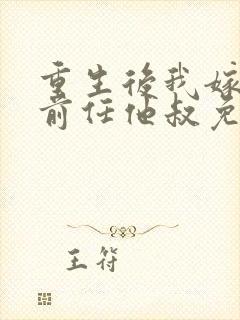 重生後我嫁
前任他叔免
王符